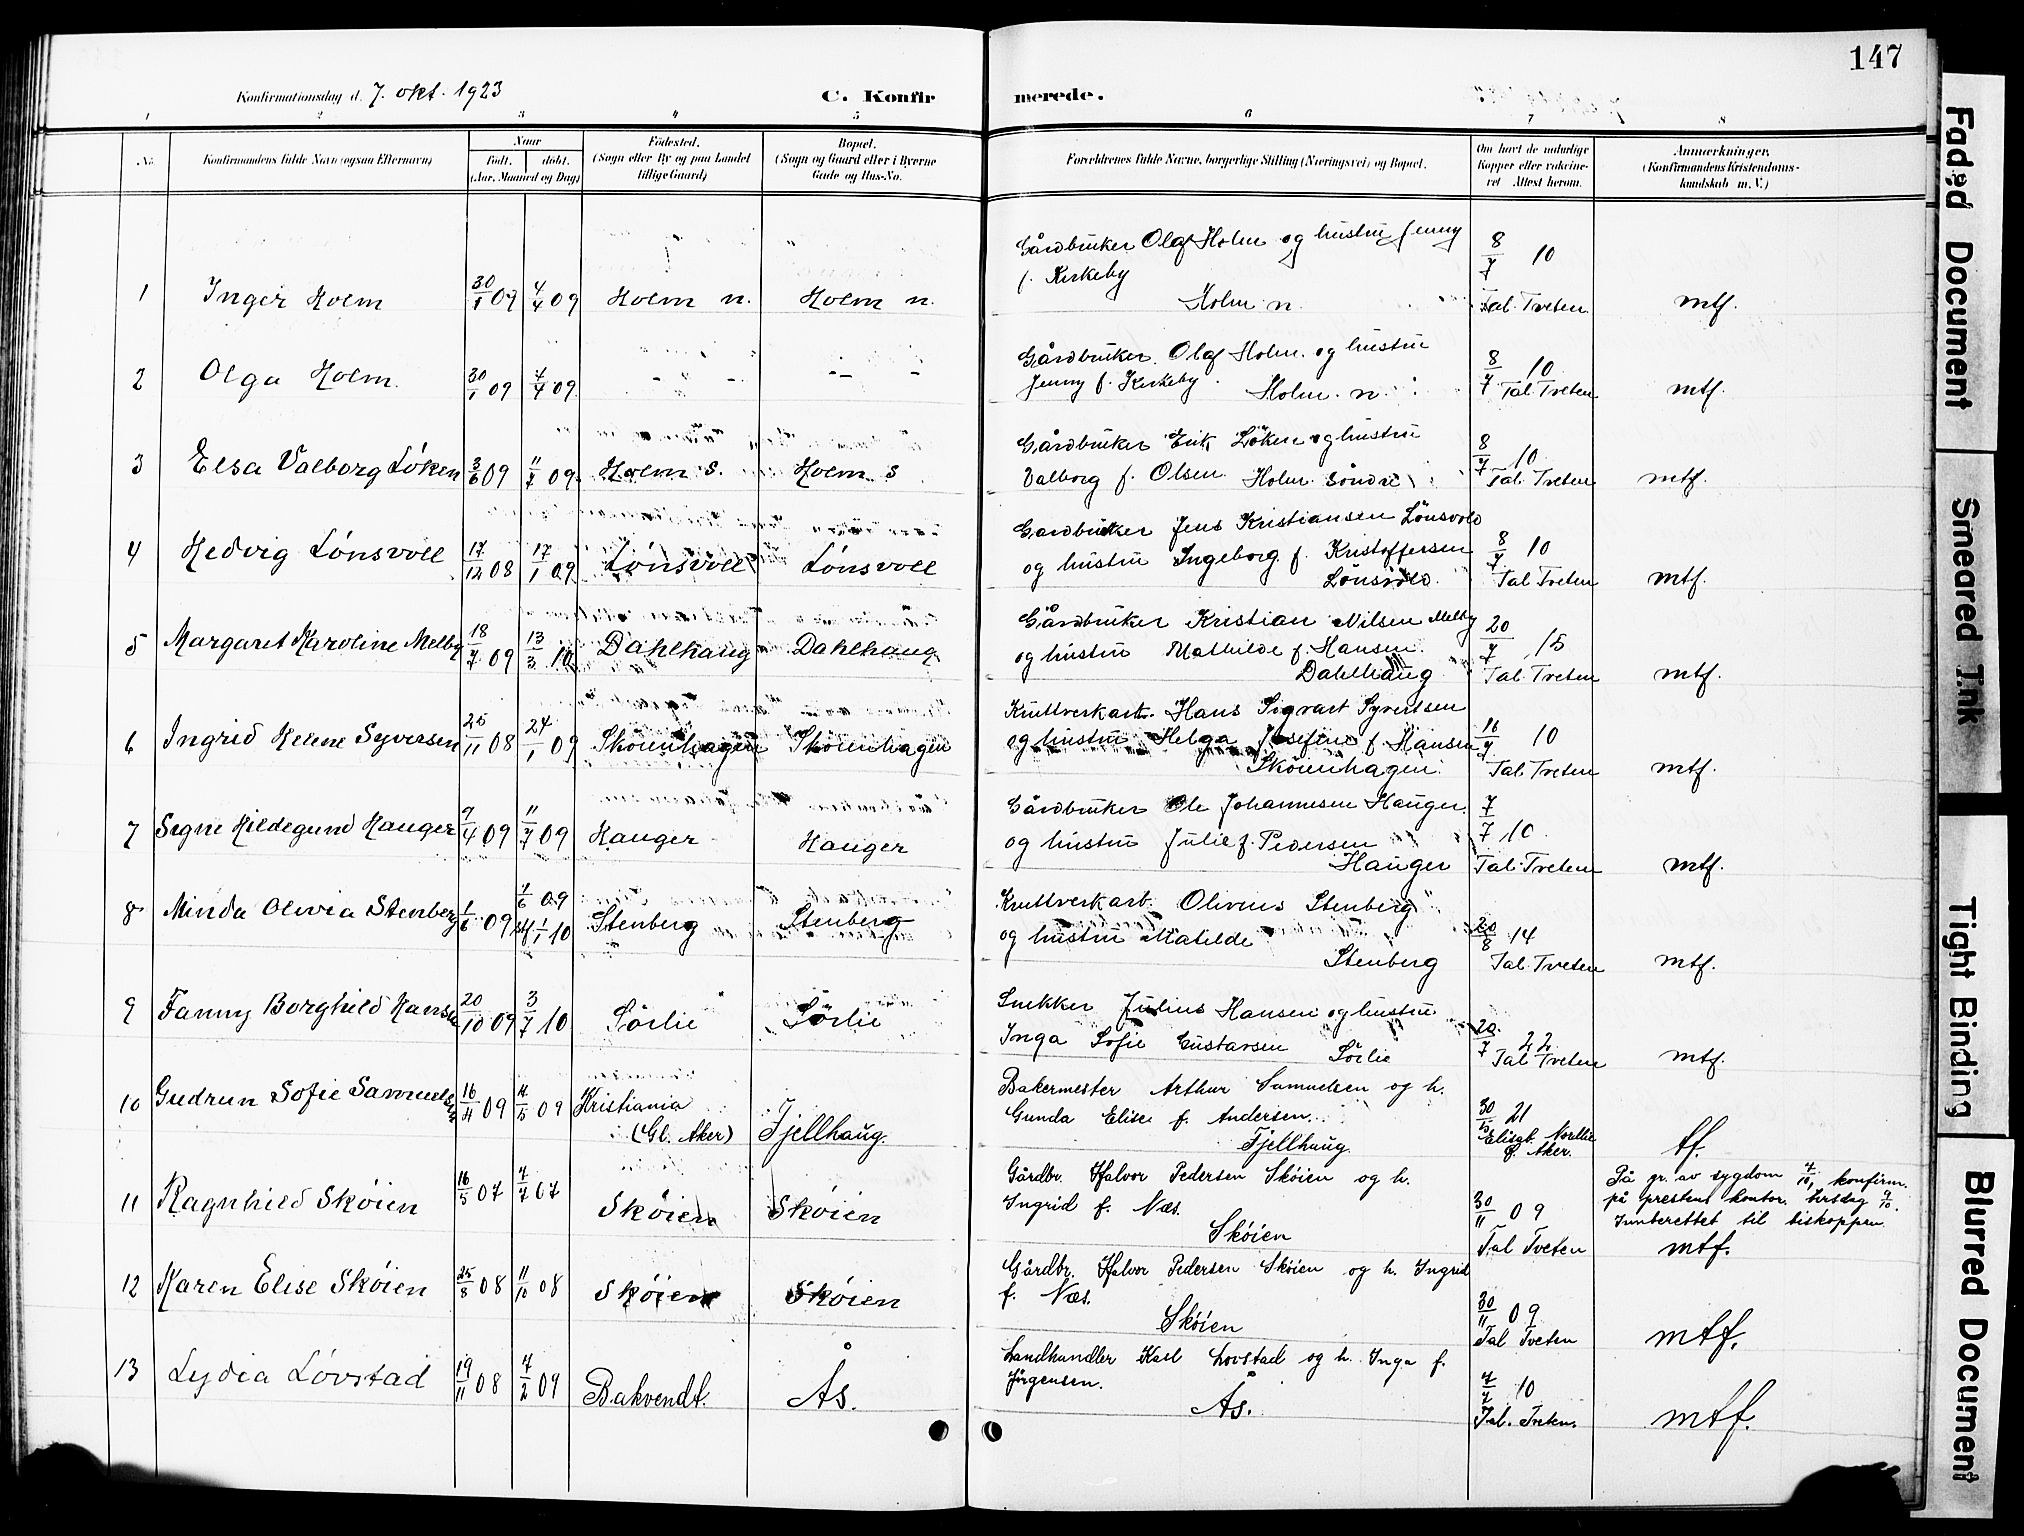 147
Konfirmationsdag d. 7. okt. 1923
C. Konfirmerede.
1 2 3 4 5 6 7 8
No.
Konfirmandens fulde Navn (ogsaa Efternavn)
Naar
født. døbt.
(Aar, Maaned og Dag)
Födested.
(Sogn eller By og paa Landet
tillige Gaard)
Bopæl.
(Sogn og Gaard eller i Byerne
Gade og Hus-No.
Forældrenes fulde Navne, borgerlige Stilling (Næringsvei) og Bopæl.
Om havt de naturlige
Kopper eller vakcine-
ret Attest herom.
Anmærkninger.
(Konfirmandens Kristendoms-
kundskab m. V.)
1 Inger Holm 30/1 09 4/4 09 Holm n. Holm n.
Gårdbruker Olaf Holm og hustru Jenny
f. Kirkeby
Holm n.
8/7 10
Tal. Tveten mtf.
2 Olga Holm. 30/1 09 4/4 09 - " - - " -
Gårdbruker Olaf Holm og hustru
Jenny f. Kirkeby. Holm. n.
8/7 10
Tal Tveten mtf.
3 Elsa Valborg Løken 3/6 09 11/7 09 Holm s. Holm s
Gårdbruker Erik Löken og hustru
Valborg f. Olsen Holm söndre
8/7 10
Tal. Tveten mtf.
4 Hedvig Lónsvoll 17/12 08 17/1 09 Lónsvoll Lónsvoll
Gårdbruker Jens Kristiansen Lönsvold
og hustru Ingeborg f. Kristoffersen
Lönsvold.
8/7 10
Tal Tveten mtf.
5 Margaret Karoline Melby 18/7 09 13/3 10 Dahlhaug Dahlhaug
Gårdbruker Kristian Nilsen Melby
og hustru Mathilde f. Hansen.
Dahlhaug
20/7 15
Tal Tveten mtf.
6 Ingrid Helene Syversen 25/11 08 24/1 09 Skóienhagen Skóienhagen
Kruttverkarb. Hans Sigvart Syvertsen
og hustru Helga Josefine f. Hansen
Skóienhagen.
16/7 10
Tal. Tveten mtf.
7 Signe Hildegund Hauger 9/4 09 11/7 09 Hauger Hauger
Gårdbruker Ole Johannesen Hauger.
og hustru Julie f. Pedersen
Hauger
7/7 10.
Tal. Tveten mtf.
8 Minda Olivia Stenberg 1/6 09 1/6 09 1/1 10 Stenberg Stenberg
Kruttverkarb. Olivius Stenberg
og hustru Matilde
Stenberg
20/8 14
Tal. Tveten mtf.
9 Fanny Borghild Hansen 20/10 09 3/7 10 Sörlie Sörlie
Snekker Julius Hansen og hustru
Inga Sofie Gustavsen Sörlie
20/7 22
Tal Tveten mtf.
10 Gudrun Sofie Samuelsen 16/4 09 4/5 09 Kristiania
(Gl. Aker) Fjellhaug.
Bakermester Arthur Samuelsen og h.
Gunda Elise f. Andersen.
Fjellhaug.
21
Aker. tf.
11 Ragnhild Skóien 16/5 07 7/7 07 Skóien Skóien
Gårdbr. Halvor Pedersen Skóien og h.
Ingrid f. Næs.
Skóien
30/11 09
Tal Tveten
På gr. av sygdom 7/10, konfirm.
på prestens kontor tirsdag 9/10.
Innberettet til biskoppen.
mtf.
12 Karen Elise Skóien 25/8 08 11/10 08 Skóien Skóien
Gårdbr. Halvor Pedersen Skóien og h. Ingrid
f. Næs.
Skóien
30/11 09
Tal Tveten mtf.
13 Lydia Lóvstad 19/11 08 7/2 09 Bakvendt. Ås.
Landhandler Karl Lovstad og h. Inga f.
Jórgensen.
Ås.
7/7 10
Tal. Tveten. mtf.
Faded Document
Smeared Ink
Tight Binding
Blurred Document